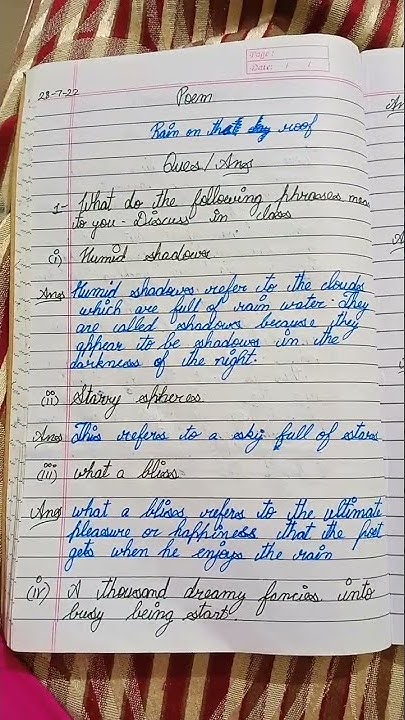 Page:
Date: / /
28-7-22
Poem
Rain on roof
Ques/Ans
1- What do the following phrases mea
to you - Discuss in class
(i) Humid shadows
Ans Humid shadows refer to the clouds
which are full of rain water. They
are called shadows because they
appear to be shadows in the
darkness of the night.
(ii) Starry spheres
Ans This referes to a sky full of stars
(iii) what a bliss
Ans what a bliss referes to the ultimate
pleasure or happiness, that the poet
gets when he enjoys the rain
(iv) A thousand dreamy fancies into
busy being start.